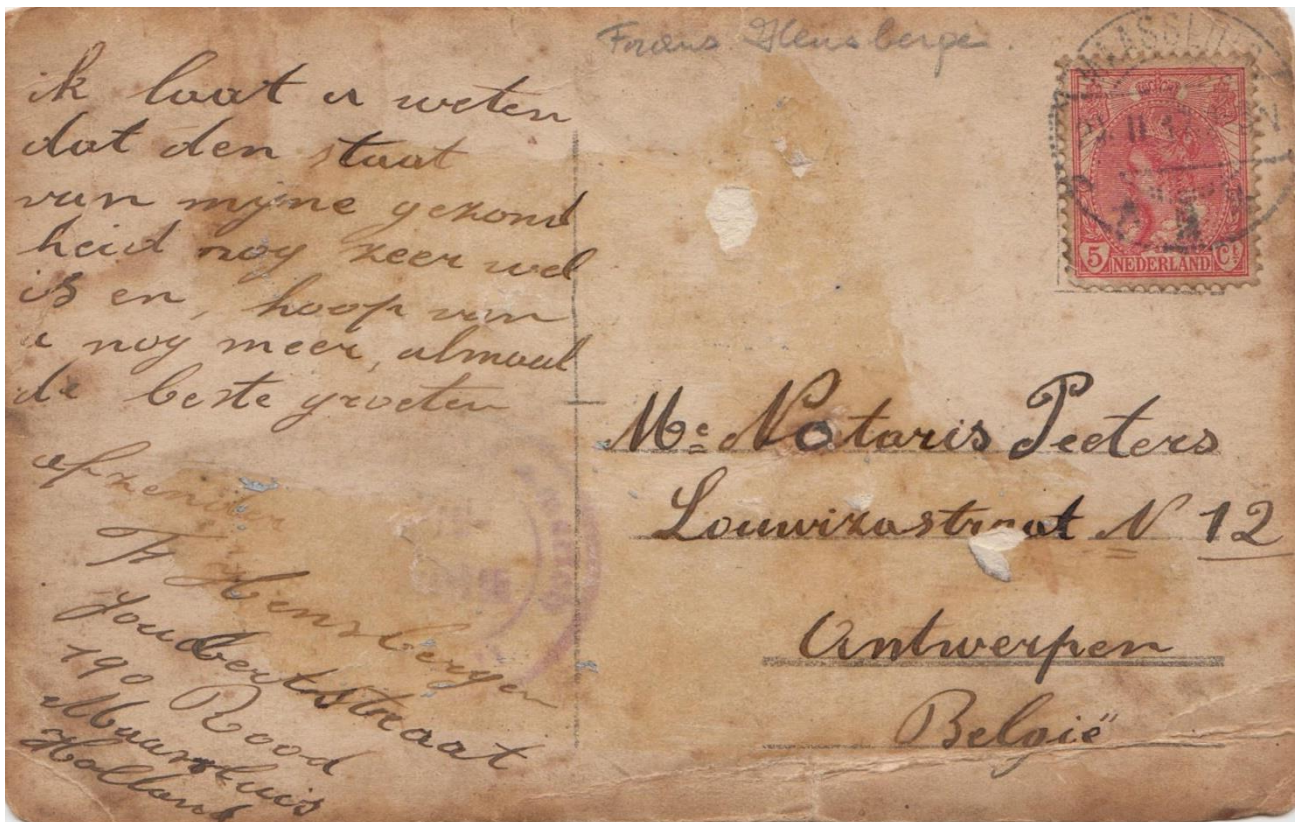 Frans Hensbergen
ik laat u weten
dat den staat
van mijne gezond
heid nog zeer wel
is en, hoop van
u nog meer, almaal
de beste groeten
afzender
F Hensbergen
Joubertstraat
190 Rood
Maassluis
Holland
MAASSLUIS
5 NEDERLAND Ct
Mc Notaris Peeters
Louwizastraat N 12
Antwerpen
België